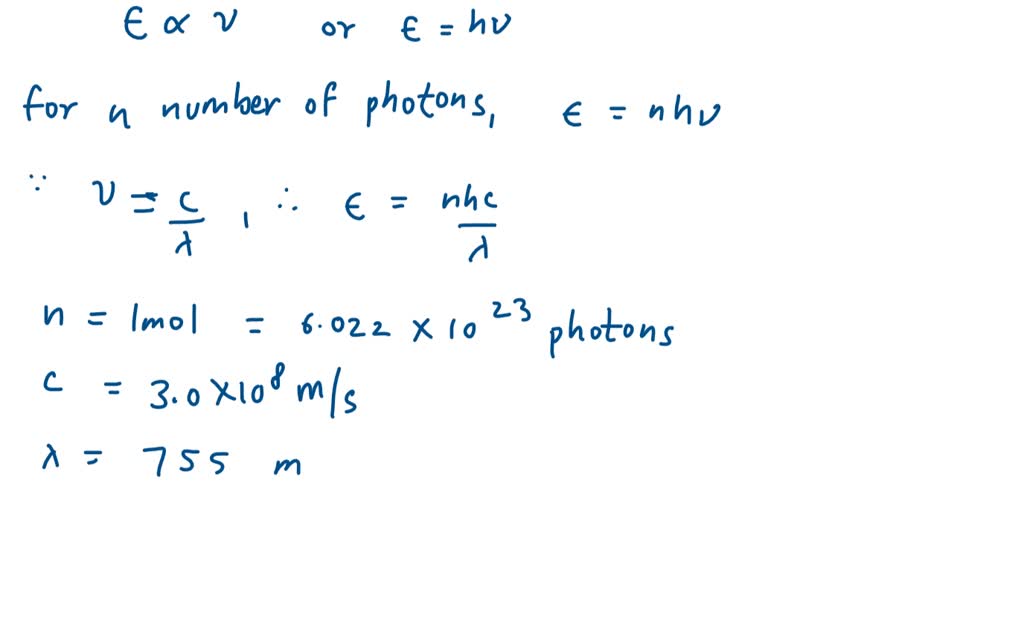 ε ∝ ν or ε = hν
for n number of photons, ε = nhν
∵ ν = c/λ , ∴ ε = nhc/λ
n = 1mol = 6.022 × 10²³ photons
c = 3.0×10⁸ m/s
λ = 755 m